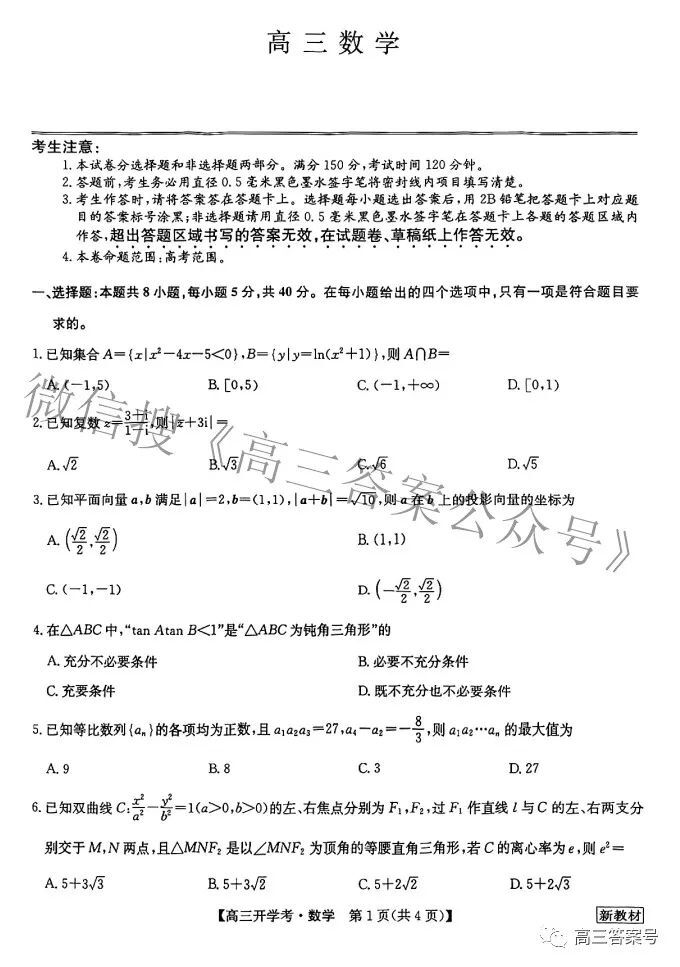 高三数学
考生注意:
1. 本试卷分选择题和非选择题两部分。满分150分,考试时间120分钟。
2. 答题前,考生务必用直径0.5毫米黑色墨水签字笔将密封线内项目填写清楚。
3. 考生作答时,请将答案答在答题卡上。选择题每小题选出答案后,用2B铅笔把答题卡上对应题
目的答案标号涂黑;非选择题请用直径0.5毫米黑色墨水签字笔在答题卡上各题的答题区域内
作答,超出答题区域书写的答案无效,在试题卷、草稿纸上作答无效。
4. 本卷命题范围:高考范围。
一、选择题:本题共8小题,每小题5分,共40分。在每小题给出的四个选项中,只有一项是符合题目要
求的。
1. 已知集合A={x|x²-4x-5<0},B={y|y=ln(x²+1)},则A∩B=
A. (-1,5) B. [0,5) C. (-1,+∞) D. [0,1)
2. 已知复数z=(3+i)/(1-i),则|z+3i|=
A. √2 B. √3 C. √6 D. √5
3. 已知平面向量a,b满足|a|=2,b=(1,1),|a+b|=√10,则a在b上的投影向量的坐标为
A. (√2/2,√2/2) B. (1,1)
C. (-1,-1) D. (-√2/2,√2/2)
4. 在△ABC中,“tan Atan B<1”是“△ABC为钝角三角形”的
A. 充分不必要条件 B. 必要不充分条件
C. 充要条件 D. 既不充分也不必要条件
5. 已知等比数列{aₙ}的各项均为正数,且a₁a₂a₃=27,a₄-a₂=-8/3,则a₁a₂⋯aₙ的最大值为
A. 9 B. 8 C. 3 D. 27
6. 已知双曲线C:x²/a²-y²/b²=1(a>0,b>0)的左、右焦点分别为F₁,F₂,过F₁作直线l与C的左、右两支分
别交于M,N两点,且△MNF₂是以∠MNF₂为顶角的等腰直角三角形,若C的离心率为e,则e²=
A. 5+3√3 B. 5+3√2 C. 5+2√2 D. 5+2√2
【高三开学考·数学 第1页(共4页)】 新教材
微信搜《高三答案公众号》
高三答案号